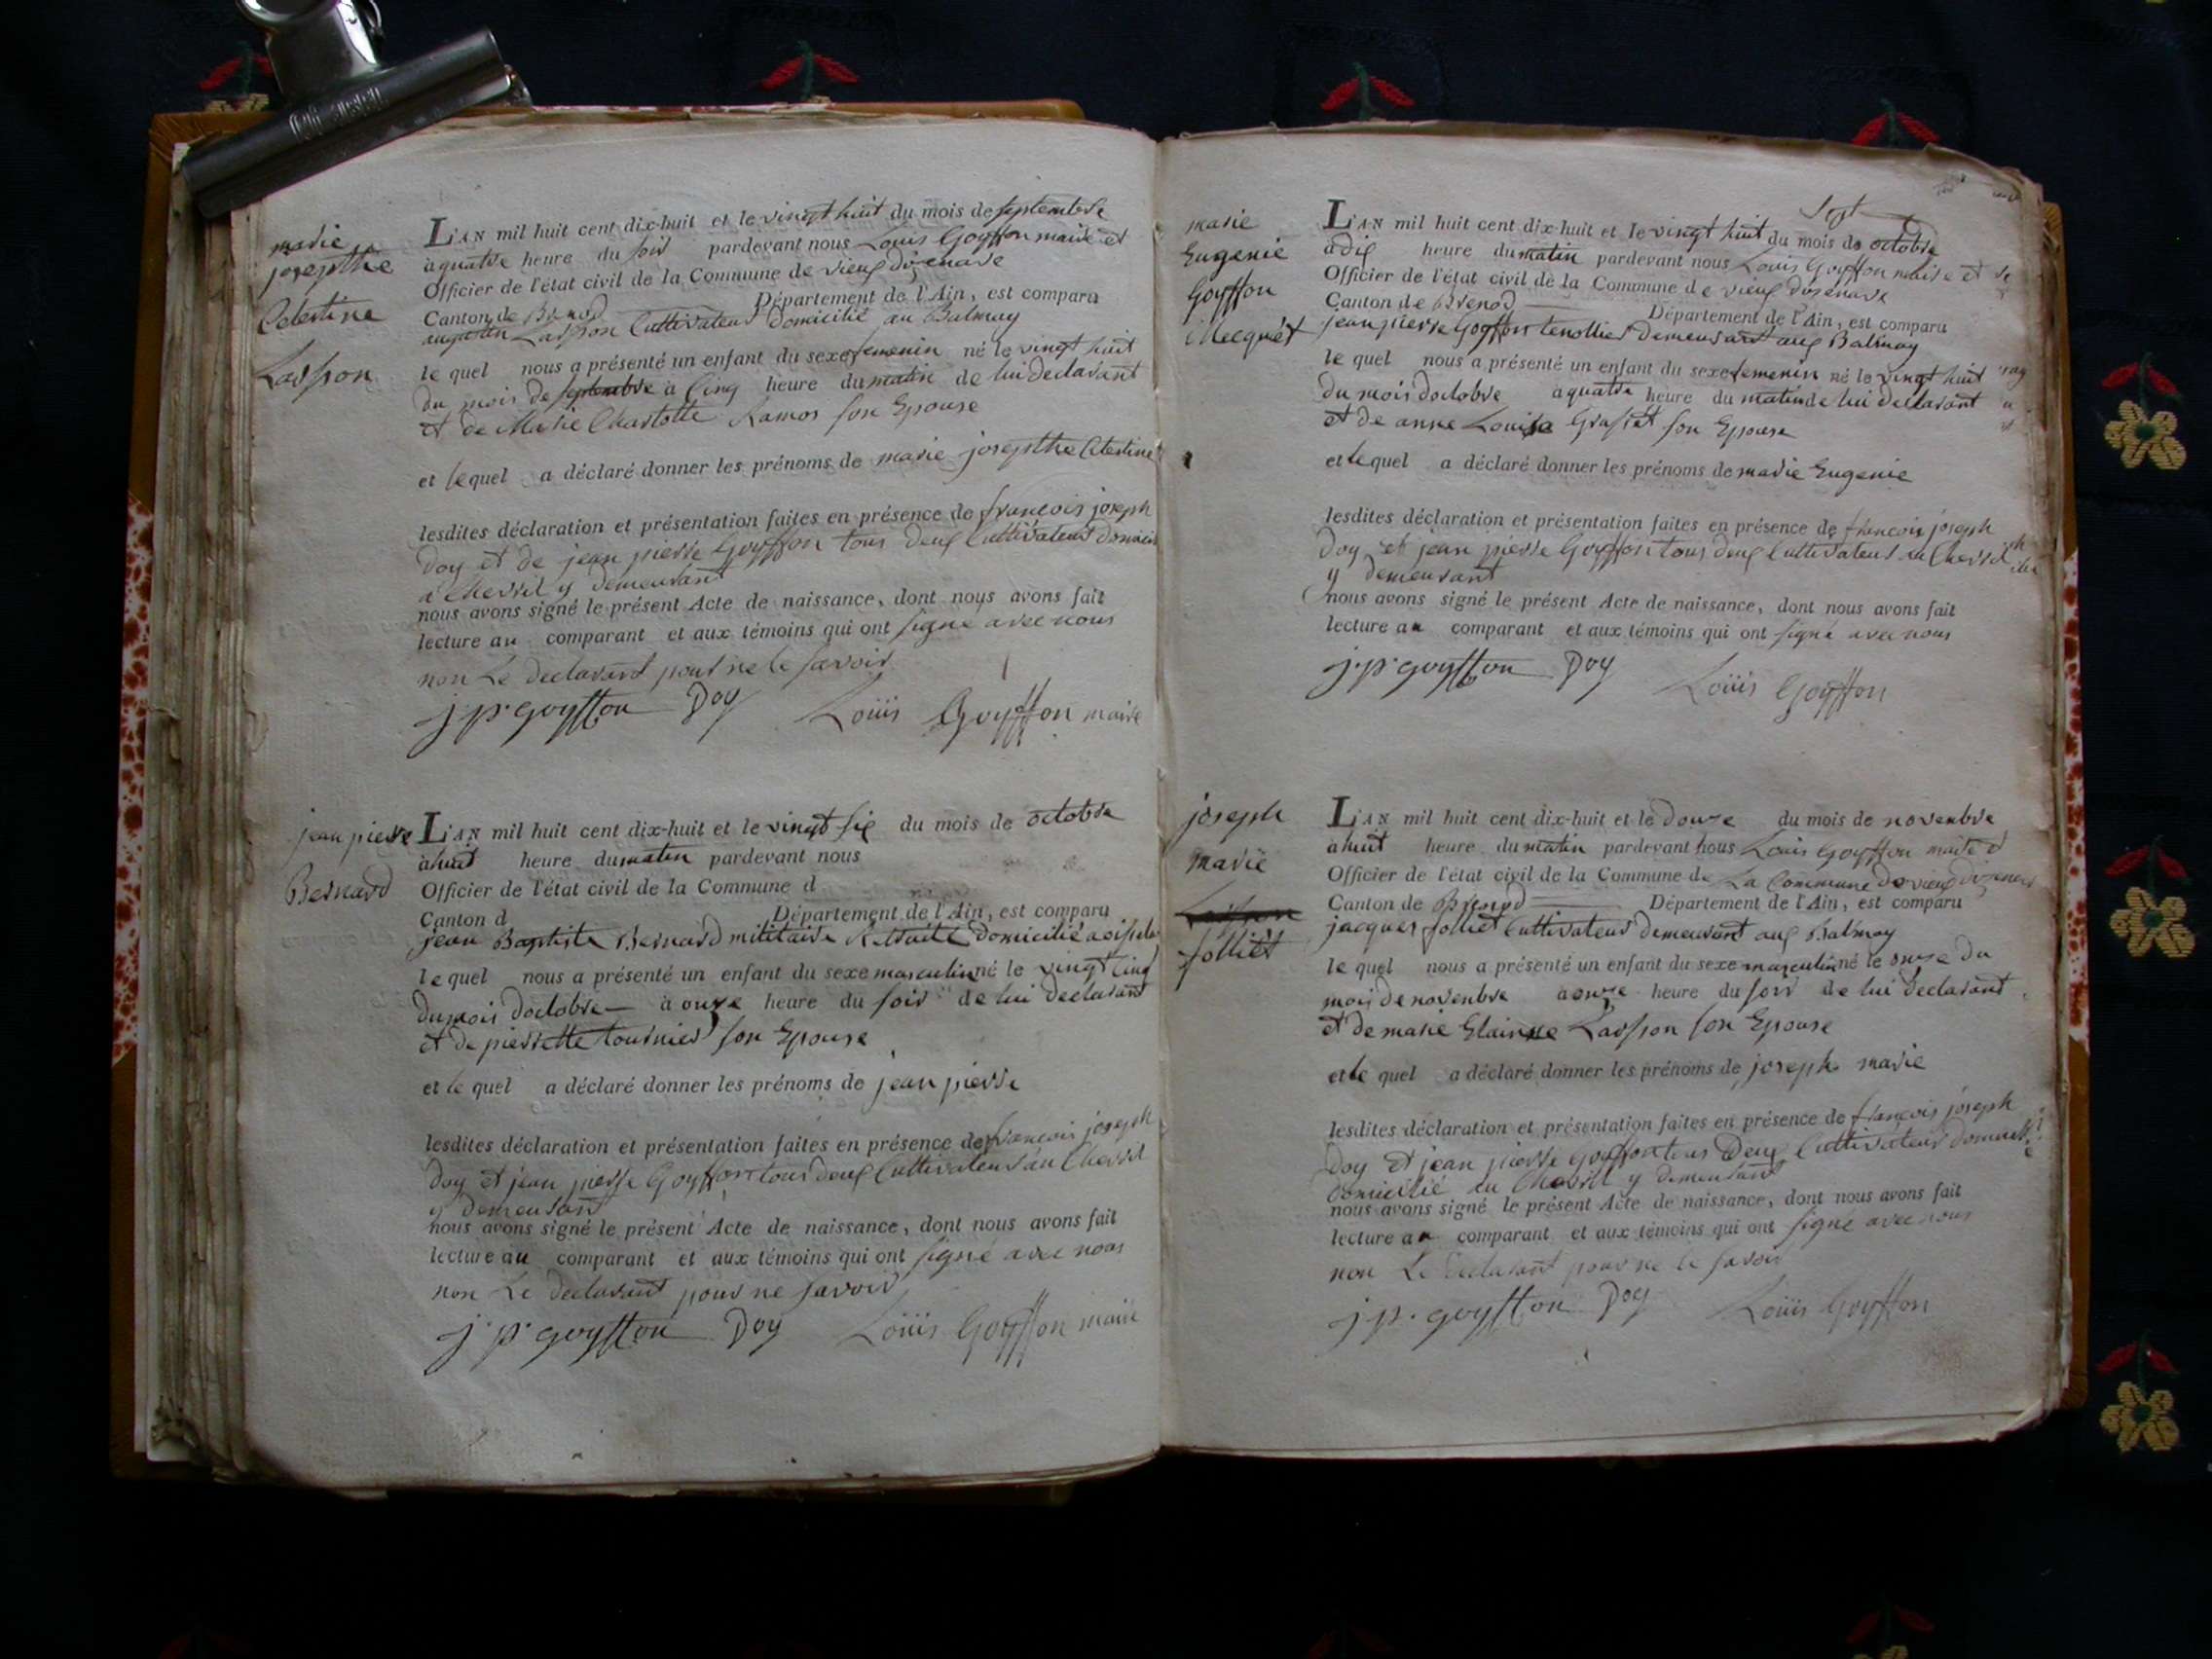 marie
josepthe
Celestine
Lasson
L'AN mil huit cent dix-huit et le vingt huit du mois de septembre
a quatre heure du soir pardevant nous Louis Goyffon maire et
Officier de l'état civil de la Commune de vieux dizenave
Canton de Brenod Département de l'Ain, est comparu
augustin Lasson Cultivateur domicilié au Balmay
le quel nous a présenté un enfant du sexe femenin né le vingt huit
du mois de septembre à Cinq heure du matin de lui declarant
et de Marie Charlotte Ramos son Epouse
et le quel a déclaré donner les prénoms de marie josepthe Celestine
lesdites déclaration et présentation faites en présence de francois joseph
Doy et de jean pierre Goyffon tous deux Cultivateurs
a Chevril y demeurant
nous avons signé le présent Acte de naissance, dont nous avons fait
lecture au comparant et aux témoins qui ont signé avec nous
non Le declarant pour ne le savoir
j.p. goyffon Doy Loüis Goyffon maire
jean pierre
Bernard
L'AN mil huit cent dix-huit et le vingt six du mois de octobre
à huit heure du matin pardevant nous
Officier de l'état civil de la Commune d
Canton d Département de l'Ain, est comparu
jean Baptiste Bernard militaire Retraité domicilié
le quel nous a présenté un enfant du sexe masculin né le vingt Cinq
du mois doctobre à onze heure du soir de lui declarant
et de pierrette tournier son Epouse
et le quel a déclaré donner les prénoms de jean pierre
lesdites déclaration et présentation faites en présence de francois joseph
Doy et jean pierre Goyffon tous deux Cultivateurs au Chevril
y demeurant
nous avons signé le présent Acte de naissance, dont nous avons fait
lecture au comparant et aux témoins qui ont signé avec nous
non Le declarant pour ne savoir
j.p. goyffon Doy Loüis Goyffon maire
marie
Eugenie
Goyffon
Sept
L'AN mil huit cent dix-huit et le vingt huit du mois de octobre
à dix heure du matin pardevant nous Louis Goyffon maire et
Officier de l'état civil de la Commune de vieux dizenave
Canton de Brenod Département de l'Ain, est comparu
jean pierre Goyffon tenollier demeurant aux Balmay
le quel nous a présenté un enfant du sexe femenin né le vingt huit
du mois doctobre a quatre heure du matin de lui declarant
et de anne Louise Grasset son Epouse
et le quel a déclaré donner les prénoms de marie Eugenie
lesdites déclaration et présentation faites en présence de francois joseph
Doy et jean pierre Goyffon tous deux Cultivateurs au Chevril
y demeurant
nous avons signé le présent Acte de naissance, dont nous avons fait
lecture au comparant et aux témoins qui ont signé avec nous
j.p. goyffon Doy Loüis Goyffon
joseph
marie
Lasson
jolliet
L'AN mil huit cent dix-huit et le douze du mois de novembre
à huit heure du matin pardevant nous Louis Goyffon maire et
Officier de l'état civil de la Commune de La Commune de vieux
Canton de Brenod Département de l'Ain, est comparu
jacques jolliet Cultivateur demeurant aux Balmay
le quel nous a présenté un enfant du sexe masculin né le onze du
mois de novembre a onze heure du soir de lui declarant
et de marie Lasson son Epouse
et le quel a déclaré donner les prénoms de joseph marie
lesdites déclaration et présentation faites en présence de francois joseph
Doy et jean pierre goyffon tous Deux Cultivateurs
domicilié au Chevril y demeurant
nous avons signé le présent Acte de naissance, dont nous avons fait
lecture au comparant et aux témoins qui ont signé avec nous
non Le declarant pour ne le savoir
j.p. goyffon Doy Loüis Goyffon